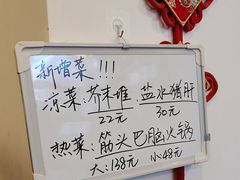 新增菜!!!
凉菜:芥末堆 盐水猪肝
22元 30元
热菜:筋头巴脑火锅
大:168元 小:48元